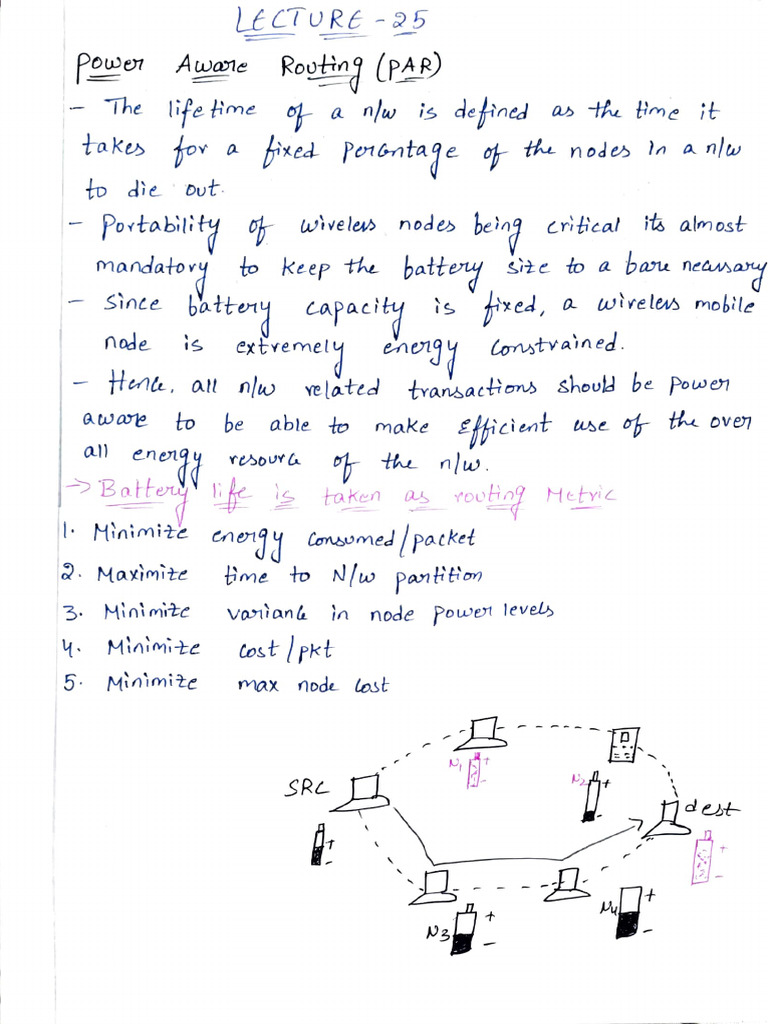 LECTURE - 25
Power Aware Routing (PAR)
- The lifetime of a n/w is defined as the time it
takes for a fixed percentage of the nodes in a n/w
to die out.
- Portability of wireless nodes being critical its almost
mandatory to keep the battery size to a bare necessary
- Since battery capacity is fixed, a wireless mobile
node is extremely energy constrained.
- Hence, all n/w related transactions should be power
aware to be able to make efficient use of the over
all energy resource of the n/w.
→ Battery life is taken as routing Metric
1. Minimize energy consumed/packet
2. Maximize time to N/w partition
3. Minimize variance in node power levels
4. Minimize cost/pkt
5. Minimize max node cost
SRC
N1 +
-
N2 +
-
dest
+
-
+
-
N3 +
-
N4 +
-